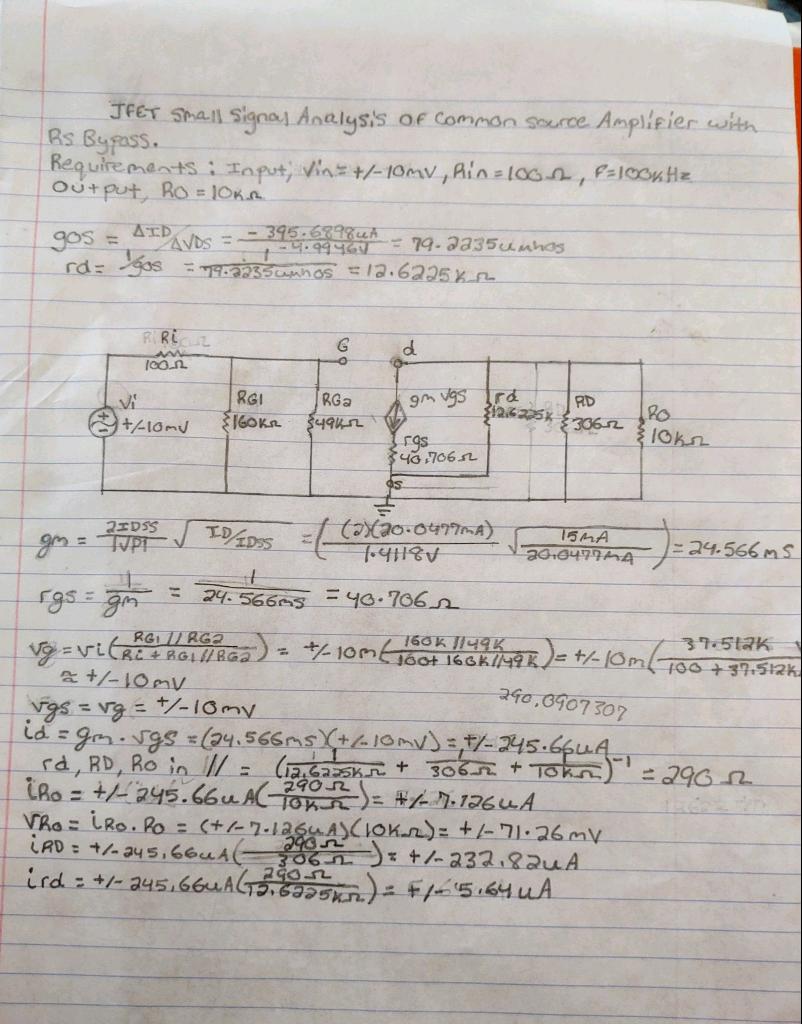 JFET Small Signal Analysis of Common Source Amplifier with
Rs Bypass.
Requirements: Input; Vin = +/-10mV, Rin = 100Ω, F=100kHz
Output, RO = 10KΩ
gos = ΔID/ΔVDS = -395.6898uA / -4.9946V = 79.2235umhos
rd = 1/gos = 1/79.2235umhos = 12.6225KΩ
Ri
100Ω
G
d
Vi
+/-10mV
RG1
160KΩ
RG2
49KΩ
gm vgs
rgs
40.706Ω
s
rd
12.6225K
RD
306Ω
RO
10KΩ
gm = 2IDSS/|VP| √ ID/IDSS = ( (2)(20.0477mA)/1.4118V √ 15mA/20.0477mA ) = 24.566mS
rgs = 1/gm = 1/24.566ms = 40.706Ω
vg = vi( RG1//RG2 / Ri + RG1//RG2 ) = +/-10m( 160K//49K / 100+160K//49K ) = +/-10m( 37.512K / 100 + 37.512K
≈ +/-10mV
290.0907307
vgs = vg = +/-10mV
id = gm · vgs = (24.566ms)(+/-10mV) = +/-245.66uA
rd, RD, Ro in // = ( 1/12.6225KΩ + 1/306Ω + 1/10KΩ )⁻¹ = 290Ω
iRo = +/-245.66uA( 290Ω/10KΩ ) = +/-7.126uA
VRo = iRo·Ro = (+/-7.126uA)(10KΩ) = +/-71.26mV
iRD = +/-245.66uA( 290Ω/306Ω ) = +/-232.82uA
ird = +/-245.66uA( 290Ω/12.6225KΩ ) = +/-5.64uA